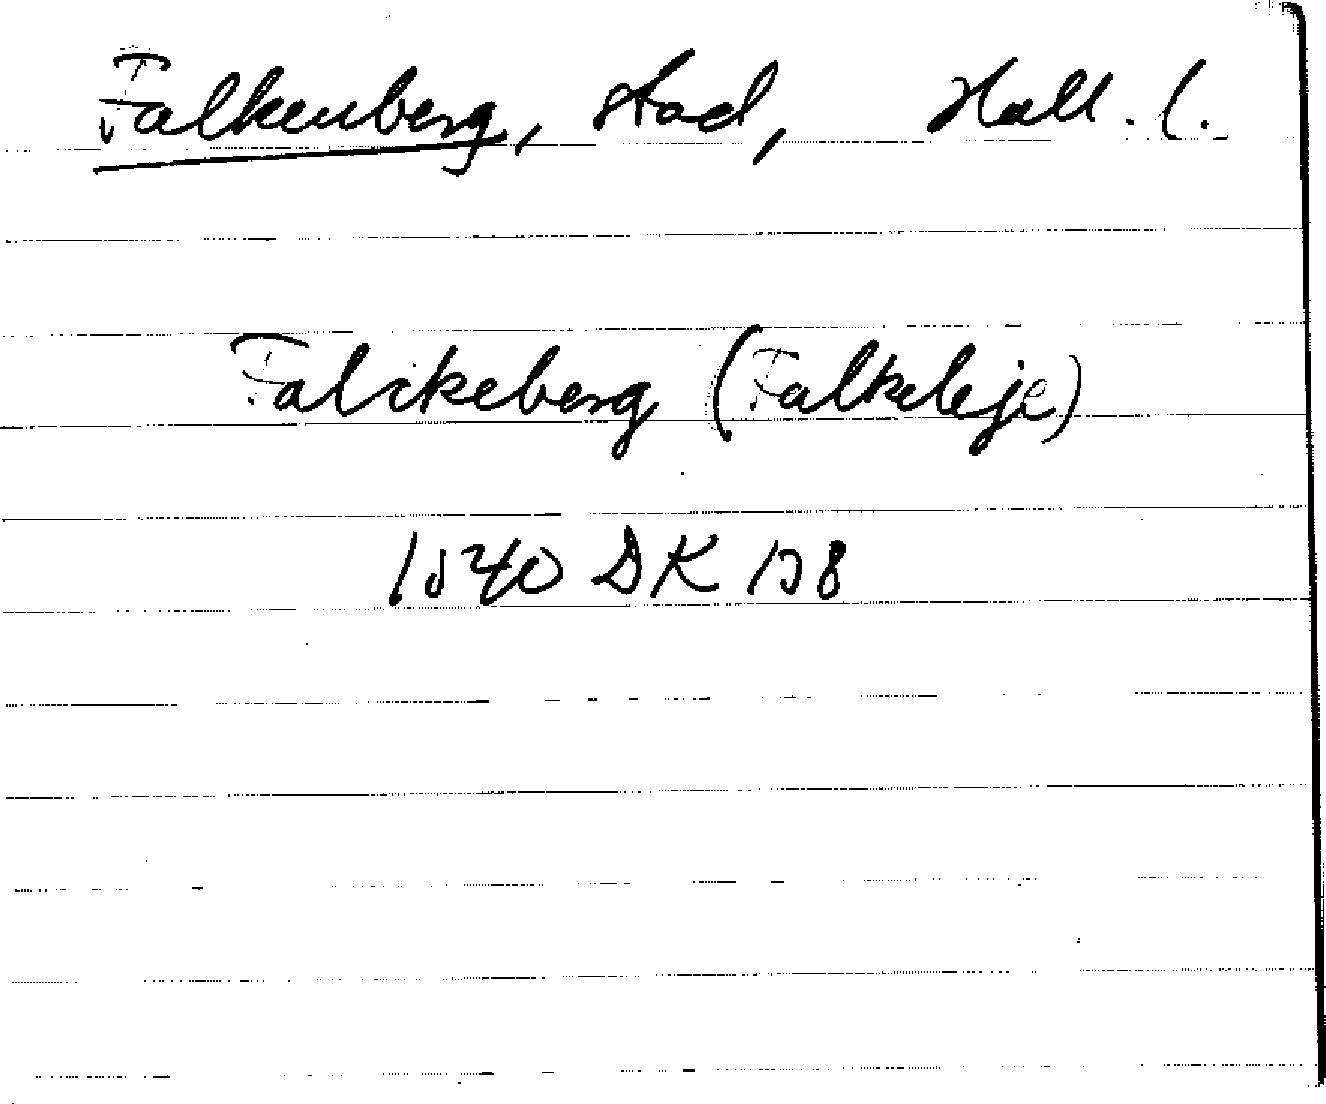 Falkenberg, stad, Hall. l.
Falckeberg (Falkeleje)
1540 DK 138